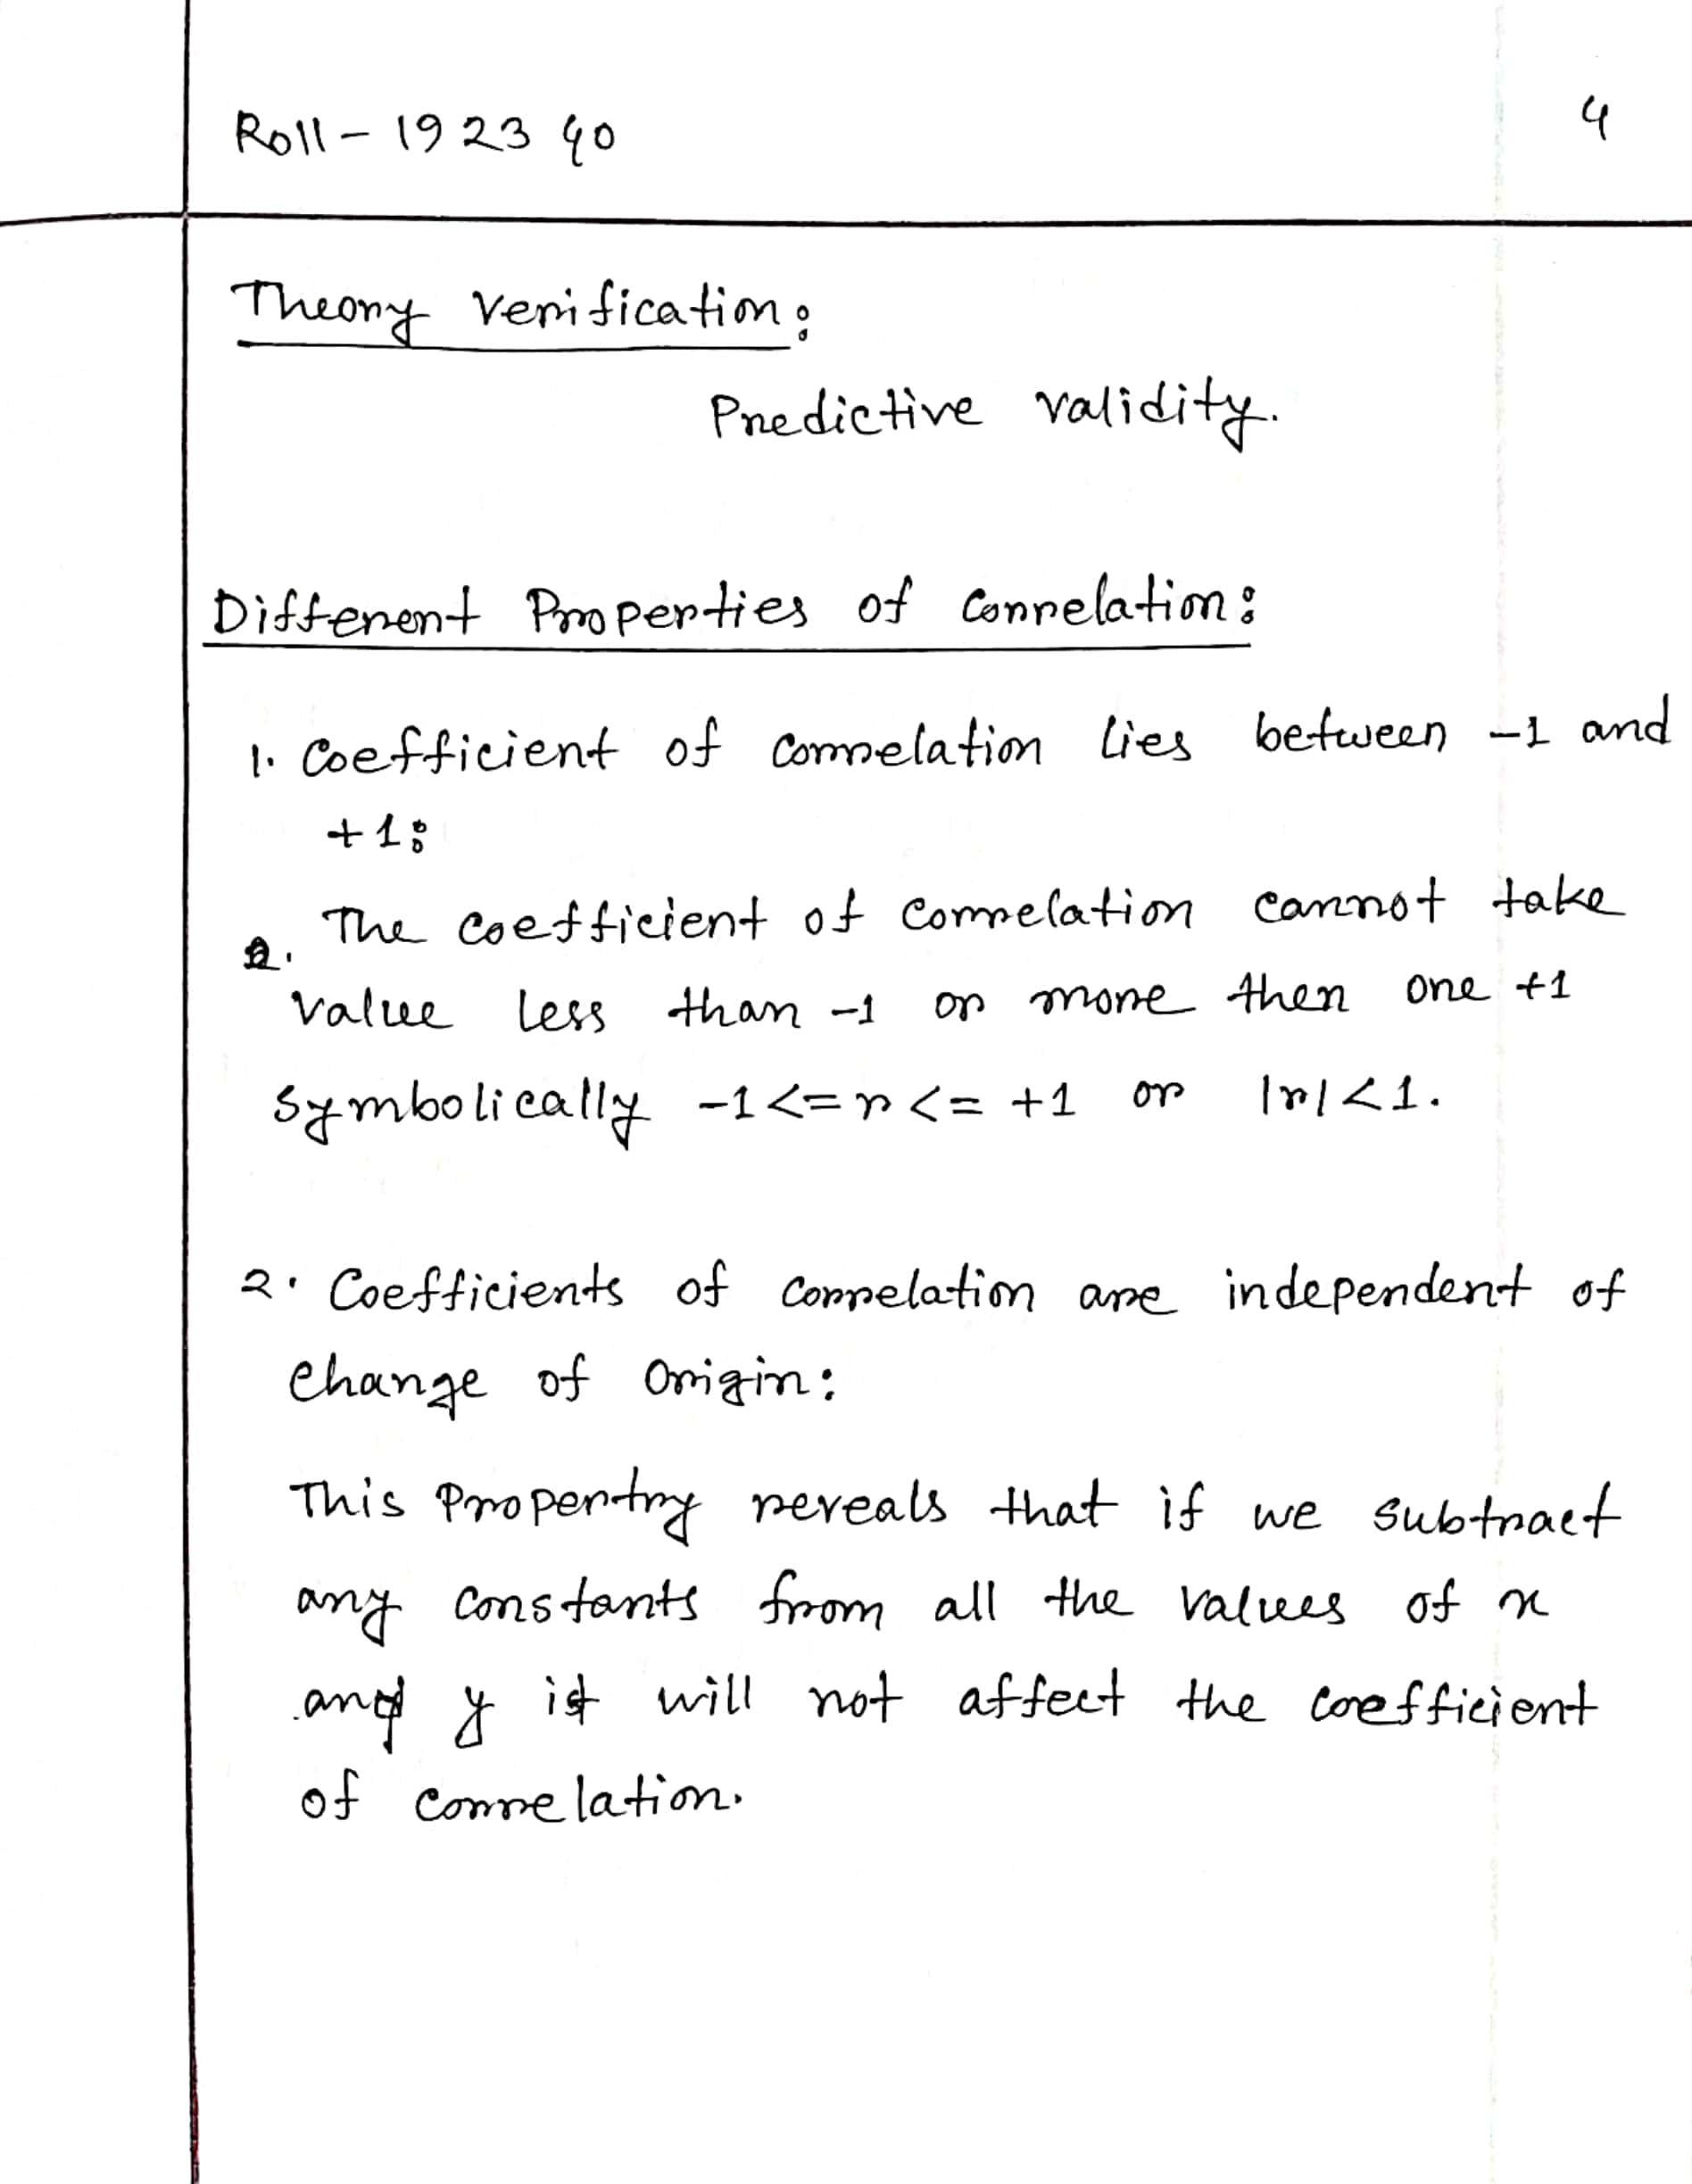 Roll - 192340
4
Theory verification:
Predictive validity.
Different Properties of Correlation:
1. Coefficient of correlation lies between -1 and
+1:
The coefficient of correlation cannot take
value less than -1 or more then one +1
symbolically -1<=r<= +1 or |r|<1.
2. Coefficients of correlation are independent of
change of Origin:
This Propertry reveals that if we subtract
any constants from all the values of x
and y it will not affect the coefficient
of correlation.